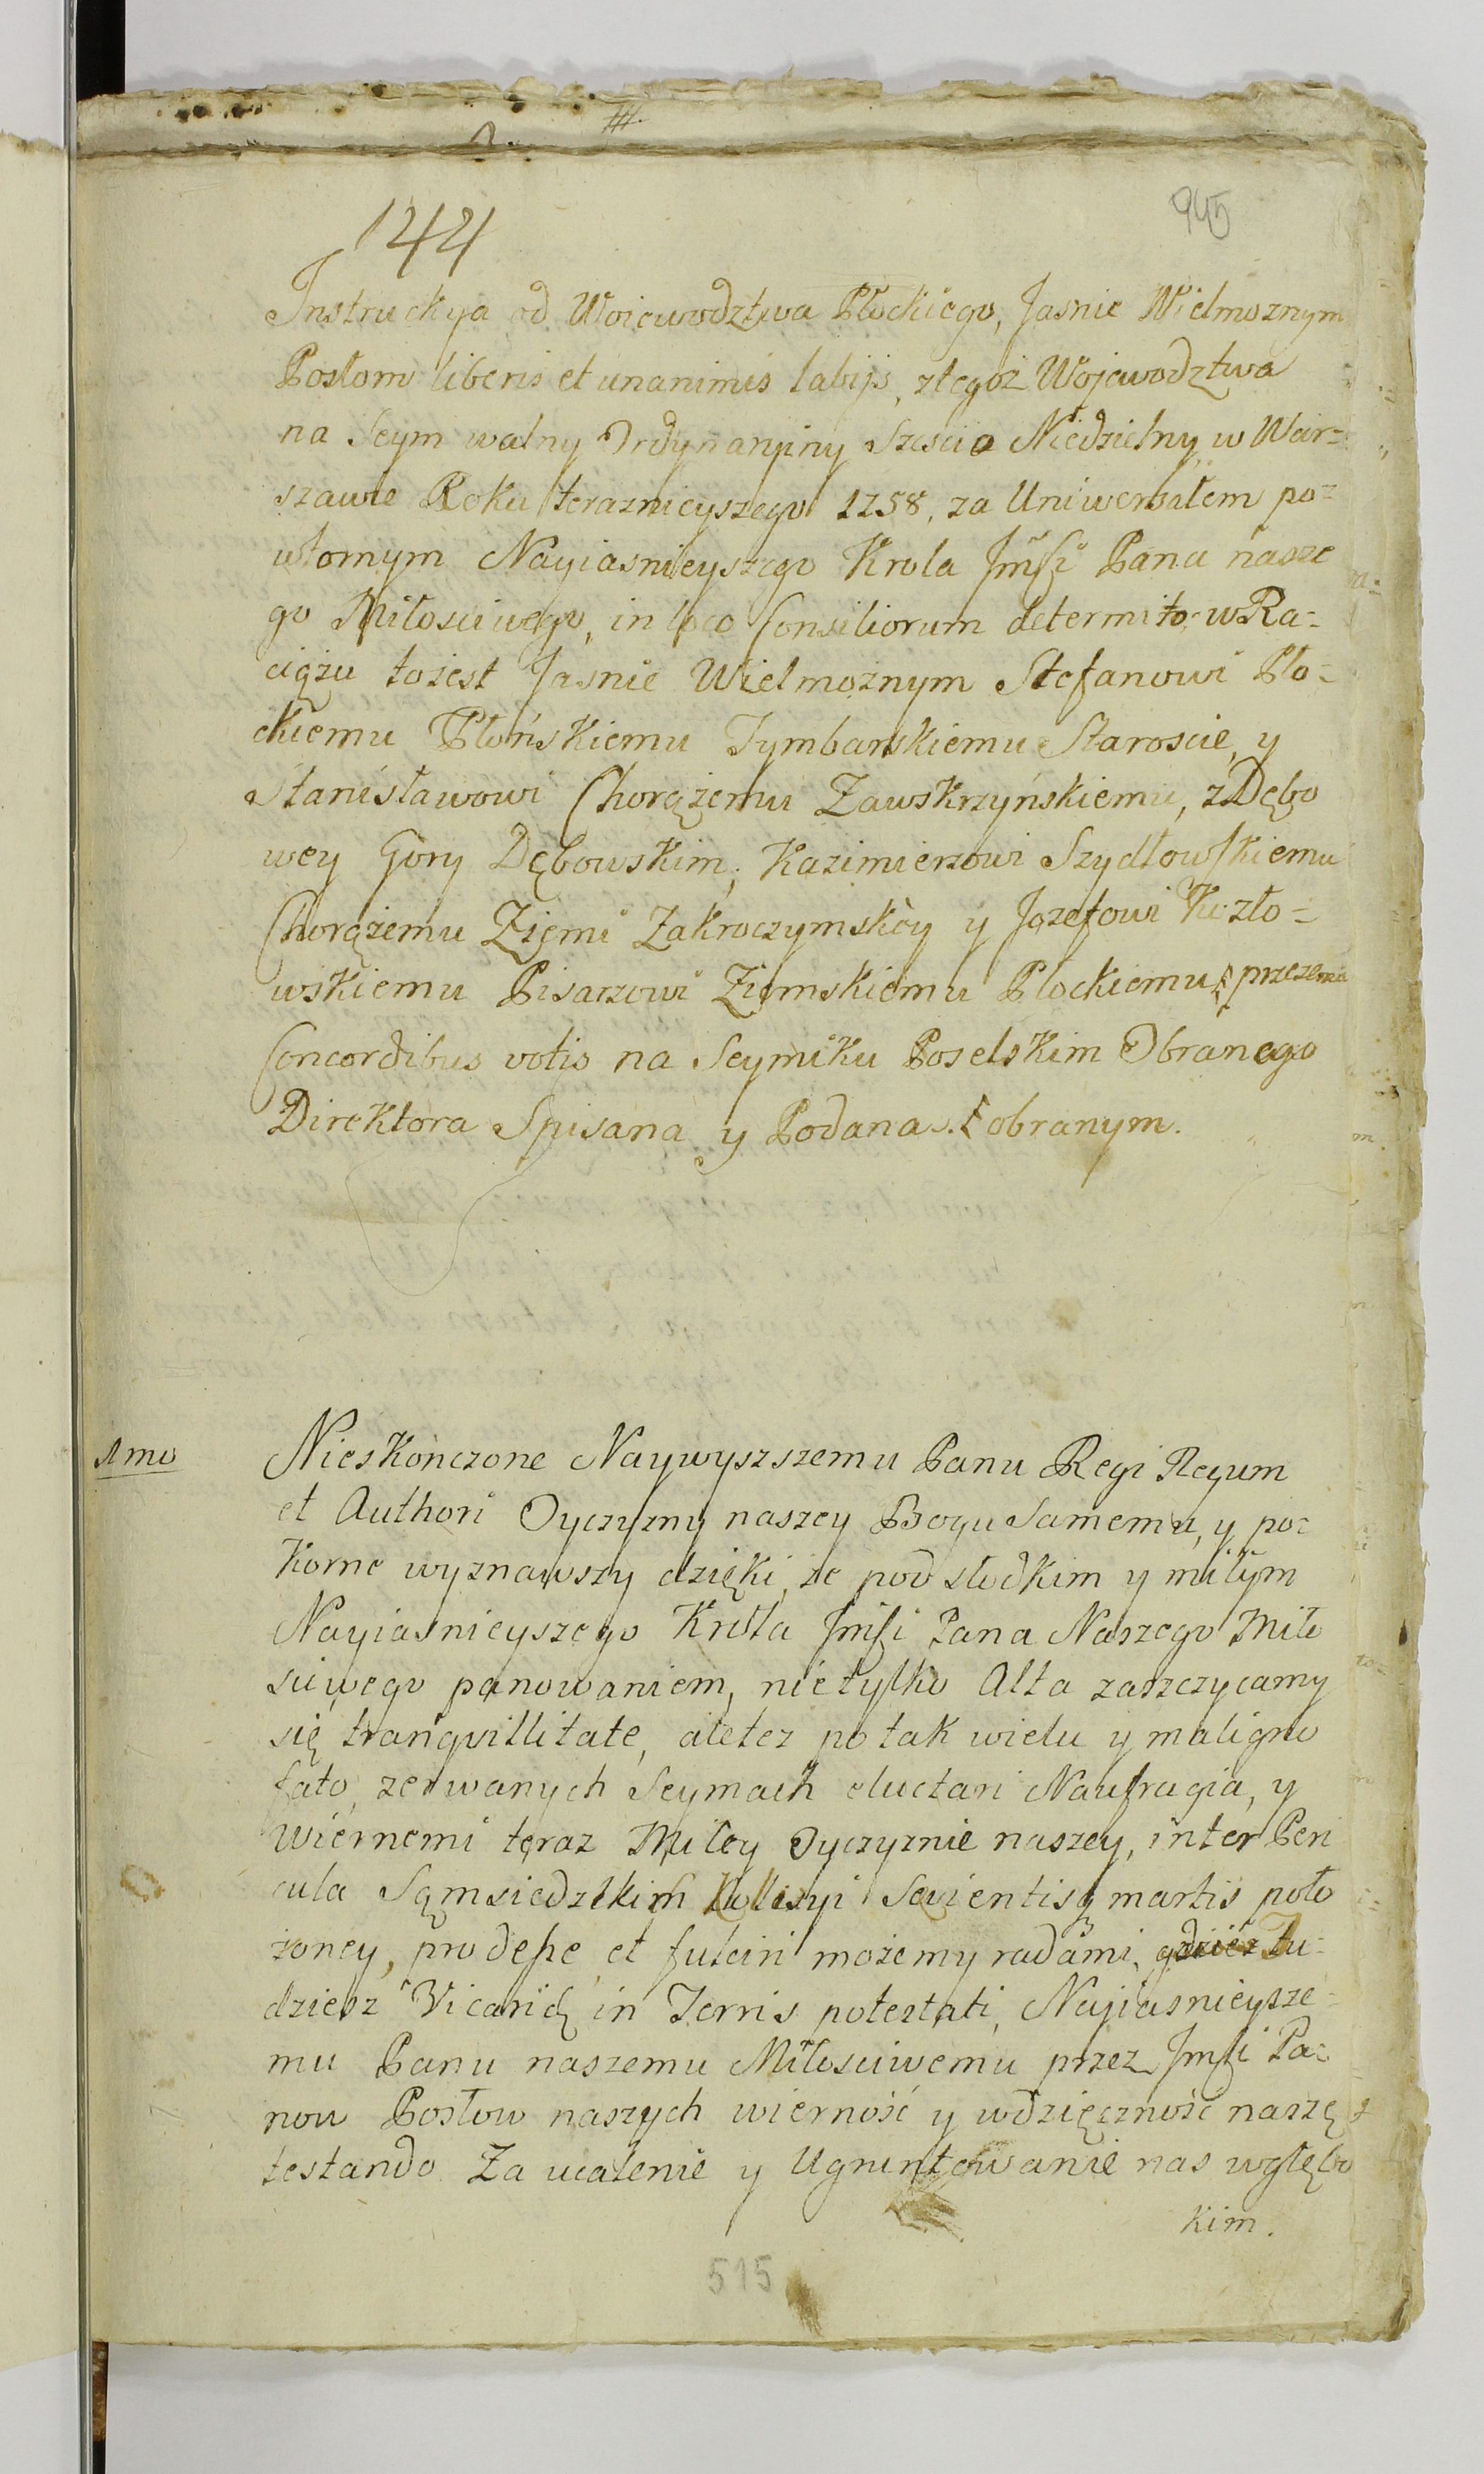 144
945
Instrukcya od Woiewodztwa Płockiego, Jasnie Wielmoznym
Posłom liberis et unanimis labijs, ztegoż Wojewodztwa
na Seym walny Ordynaryiny Szescio Niedzielny w War=
szawie Roku teraznieyszego 1758, za Uniwersałem po=
wtornym Nayiasnieyszego Krola Jmsci Pana nasze
go Miłosciwego, in loco Consiliorum determito w Ra=
ciążu toiest Jasnie Wielmożnym Stefanowi Pło=
ckiemu Płońskiemu Tymbarskiemu Staroscie, y
Stanisławowi Chorążemu Zawskrzyńskiemu, z Dębo
wey Gory Dębowskim, Kazimierzowi Szydłowskiemu
Chorążemu Ziemi Zakroczymskiey y Jozefowi Kozło=
wskiemu Pisarzowi Ziemskiemu Płockiemu przezemie
Concordibus votis na Seymiku Poselskim Obranego
Direktora Spisana y Podana. obranym.
1mo
Nieskończone Naywyszszemu Panu Regi Regum
et Authori Oyczyzny naszey Bogu Samemu, y po=
korne wyznawszy dzięki, że pod słodkim y miłym
Nayiasnieyszego Krola Jmsci Pana Naszego Miło
sciwego panowaniem, nietylko Alta zaszczycamy
się tranqvillitate, aletez po tak wielu y maligno
fato, zerwanych Seymach eluctari Naufragia, y
wiernemi teraz Miłey Oyczyznie naszey, inter Peri
cula Sąmsiedzkim Kollisyi Sevientisq martis poło
żoney, prodeße et fulciri możemy radami, Tu=
dziesz Vicarią in Terris potestati, Najiasnieysze=
mu Panu naszemu Miłosciwemu przez Jmsci Pa=
now Posłow naszych wierność y wdzięczność naszę
testando Za ucalenie y Ugruntowanie nas w głębo
kim.
515